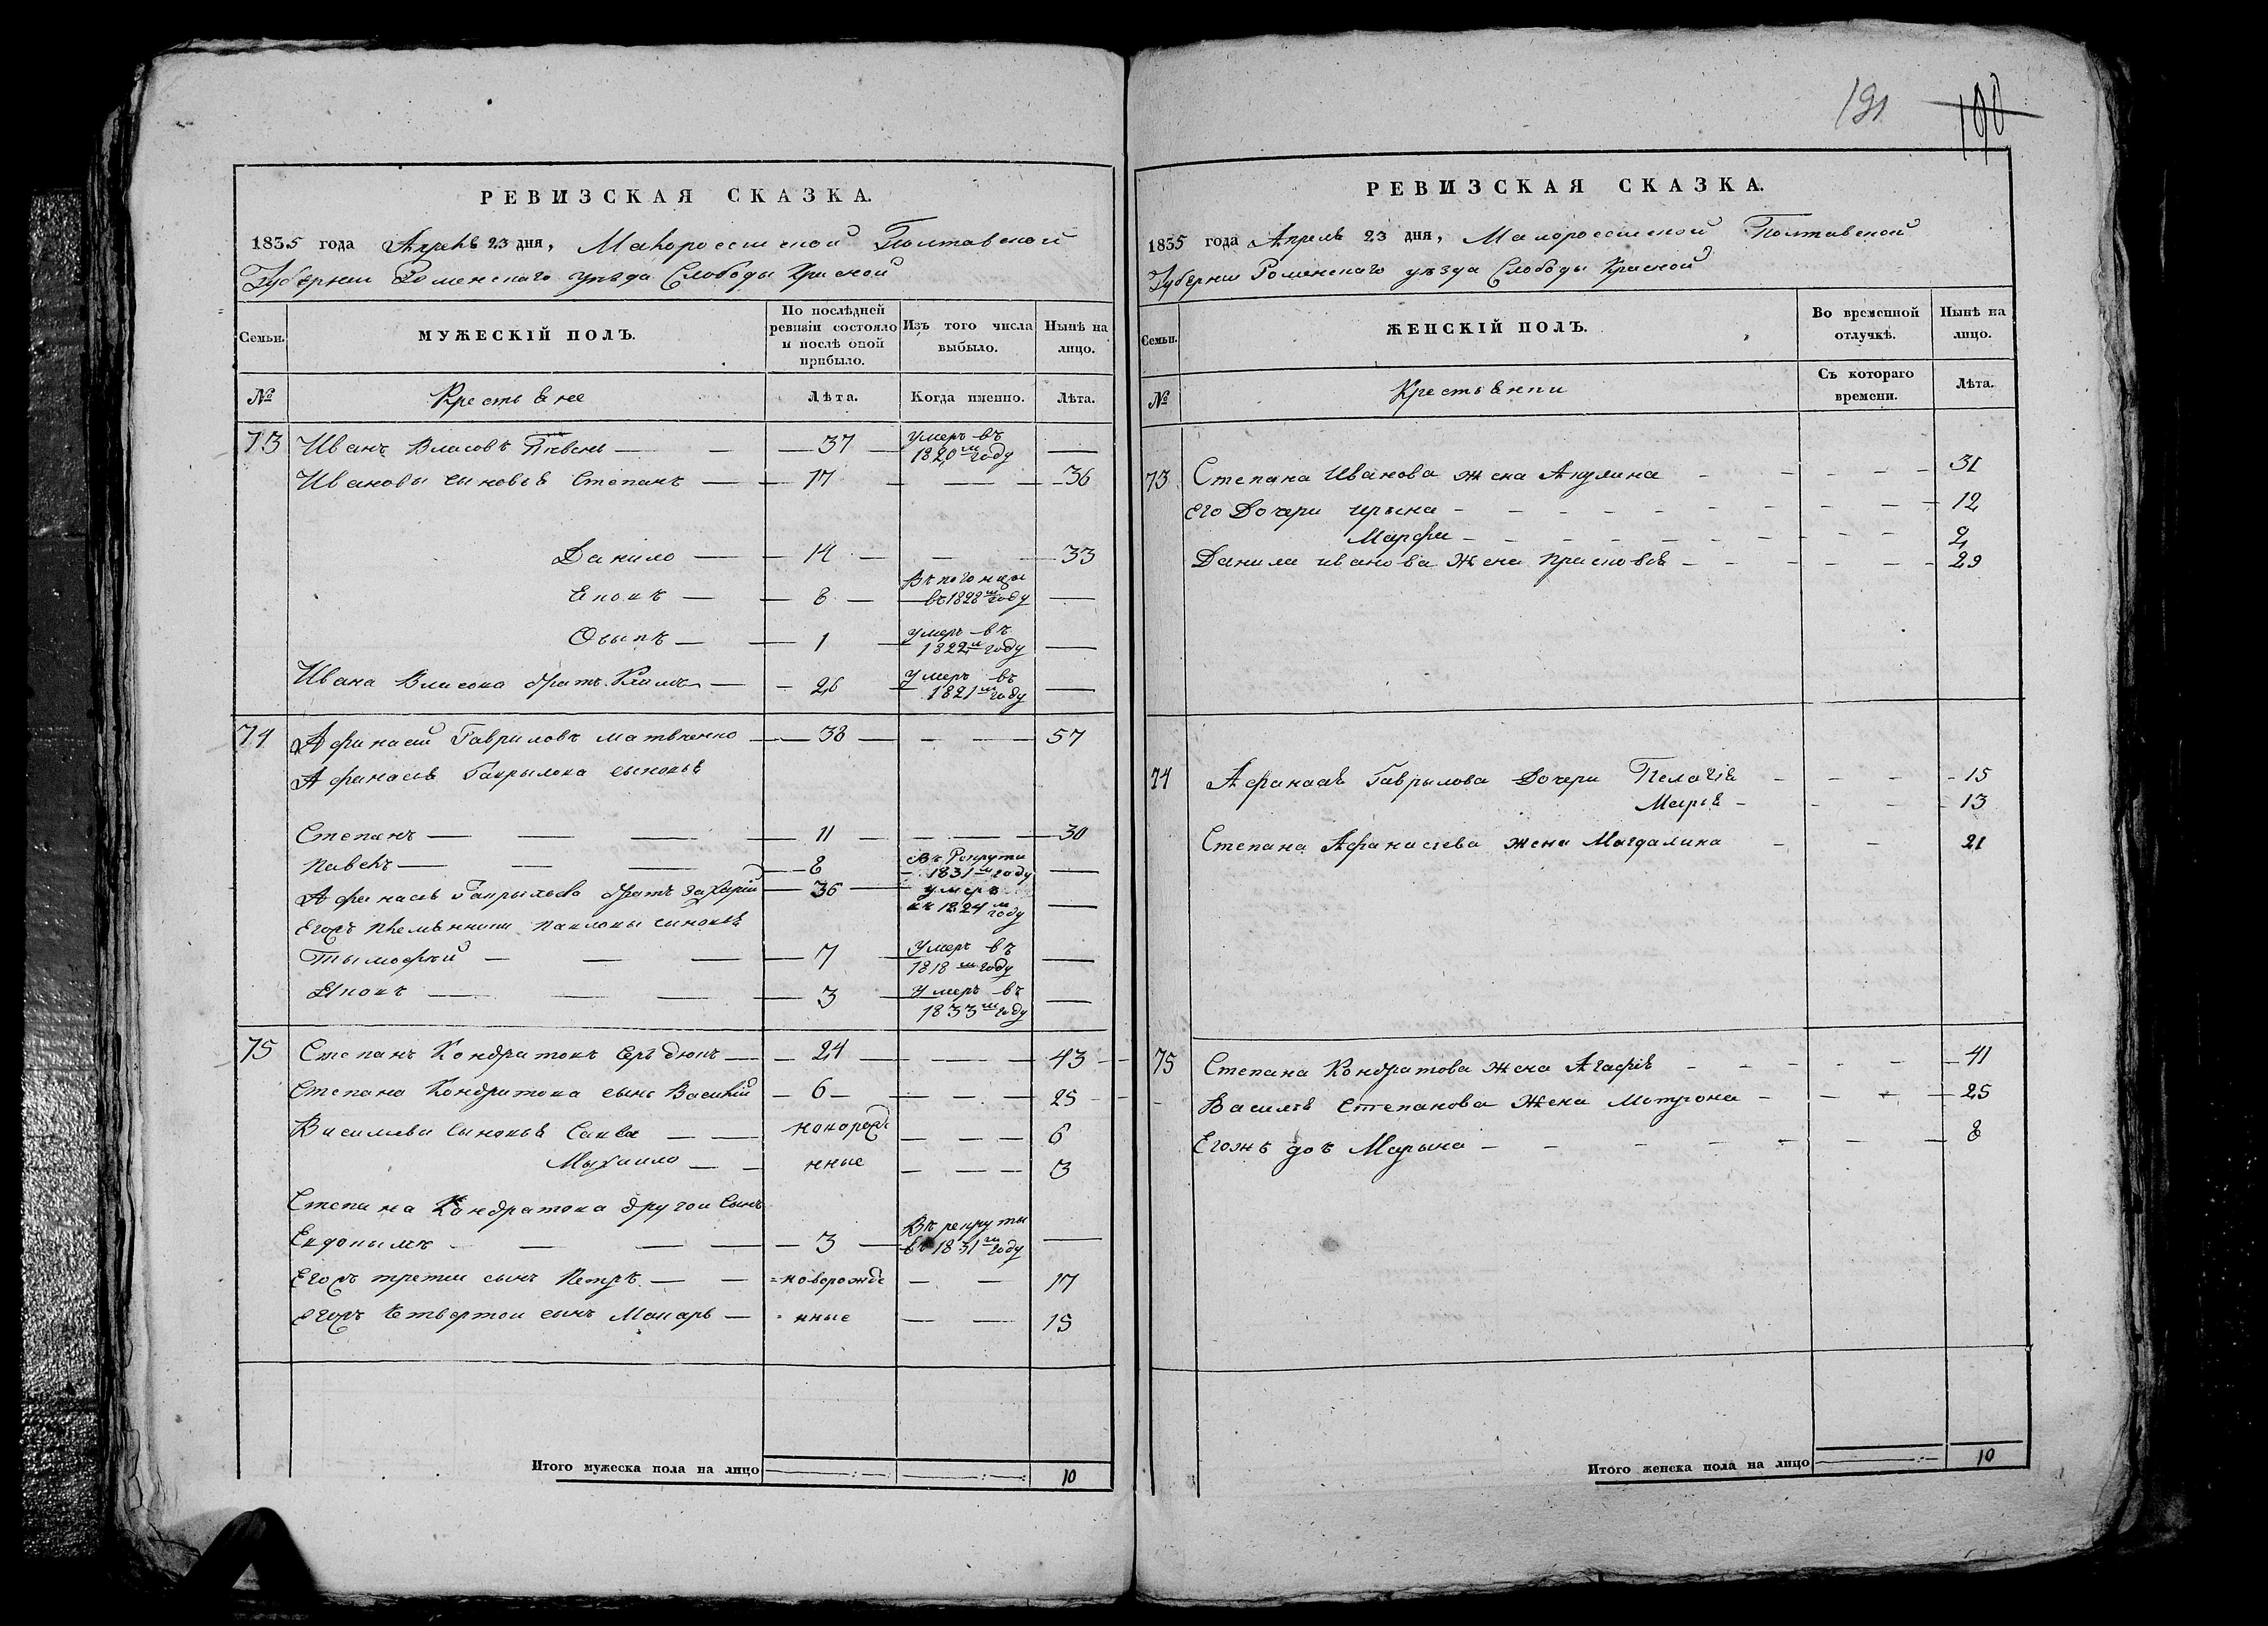 РЕВИЗСКАЯ СКАЗКА.
1835 года Апрель 23 дня, Малороссийской Полтавской
Губернии Роменского уѣзда Слободы Красной
Семьи.
МУЖЕСКІЙ ПОЛЪ.
По послѣдней ревизіи состояло и послѣ оной прибыло.
Изъ того числа выбыло.
Нынѣ на лицо.
№
Крестьяне
Лѣта.
Когда именно.
Лѣта.
73 Иванъ Власовъ Пивень — — 37 — умеръ въ 1820м году —
Ивановы сыновья Степанъ — 17 — — 36
Данило — 14 — — 33
Енохъ — 8 — въ 1828м году —
Осыпъ — 1 — умеръ въ 1822м году —
Ивана Власова братъ Климъ — 26 умеръ въ 1821м году —
74 Афанасий Гаврыловъ Матвѣенко — 38 — — 57
Афанасия Гаврылова сыновья
Степанъ — 11 — — 30
Павелъ — 8 въ Рекруты 1831м году —
Афанасия Гаврылова братъ Захарий — 36 — умеръ въ 1824м году —
Егожъ племянники Павловы сыновья
Тымофѣй — 7 умеръ въ 1818м году —
Енохъ — 3 умеръ въ 1833м году —
75 Степанъ Кондратовъ Сердюкъ — 24 — — 43
Степана Кондратова сынъ Василий — 6 — — 25
Василиевы сыновья Савва — новорожд — 6
Мыхаило — нные — 3
Степана Кондратова другой сынъ
Евдокымъ — 3 — въ рекруты въ 1831м году —
Егожъ третий сынъ Петръ — новорожде — 17
Егожъ четвертой сынъ Макаръ — нные — 15
Итого мужеска пола на лицо 10
191 190
РЕВИЗСКАЯ СКАЗКА.
1835 года Апрель 23 дня, Малороссийской Полтавской
Губернии Роменскаго уѣзда Слободы Красной
Семьи.
ЖЕНСКІЙ ПОЛЪ.
Во временной отлучкѣ.
Нынѣ на лицо.
№
Крестьянки
Съ котораго времени.
Лѣта.
73 Степана Иванова жена Акулина — 31
Его дочери Ирына — 12
Марфа — 2
Данила Иванова жена Присковья — 29
74 Афанасия Гаврылова дочери Пелагия — 15
Марья — 13
Степана Афанасиева жена Магдалина — 21
75 Степана Кондратова жена Агафия — 41
Василия Степанова жена Мотрона — 25
Егожъ дочъ Марына — 8
Итого женска пола на лицо 10